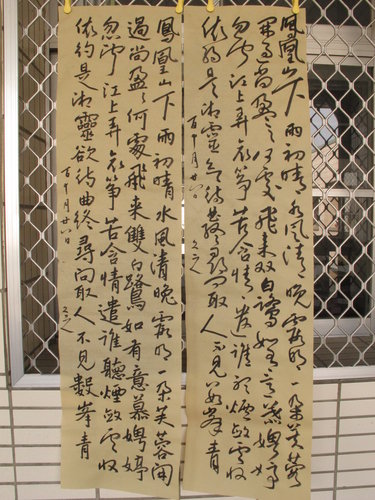 鳳凰山下雨初晴水風清晚霞明一朵芙蓉
開過尚盈盈何處飛來双白鷺如有意慕娉婷
忽聞江上弄哀箏苦含情遣誰聽煙斂雲收
依約是湘靈欲待曲終尋問取人不見數峯青
十月廿六日
鳳凰山下雨初晴水風清晚霞明一朵芙蓉開
過尚盈盈何處飛來雙白鷺如有意慕娉婷
忽聞江上弄哀箏苦含情遣誰聽煙斂雲收
依約是湘靈欲待曲終尋問取人不見數峯青
十月廿六日